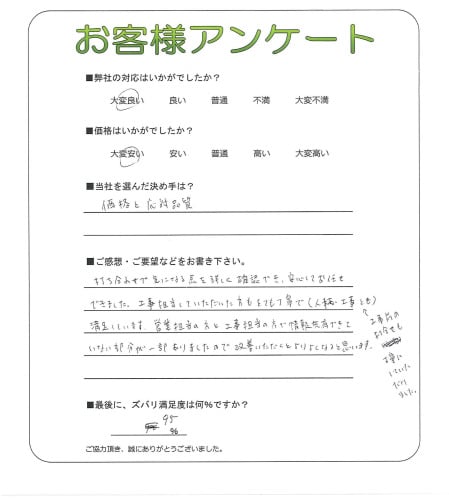 お客様アンケート
■弊社の対応はいかがでしたか？
大変良い 良い 普通 不満 大変不満
■価格はいかがでしたか？
大変安い 安い 普通 高い 大変高い
■当社を選んだ決め手は？
価格と応対品質
■ご感想・ご要望などをお書き下さい。
打ち合わせで気になる点を詳しく確認でき、安心してお任せ
できました。工事担当していただいた方もとても丁寧で(人柄・工事とも)
満足しています。営業担当の方と工事担当の方で情報共有できて
いない部分が一部ありましたので改善いただくとよりよくなると思います。
工事前の
お任せも
丁寧に
していた
だけ
ました。
■最後に、ズバリ満足度は何%ですか？
95
%
ご協力頂き、誠にありがとうございました。